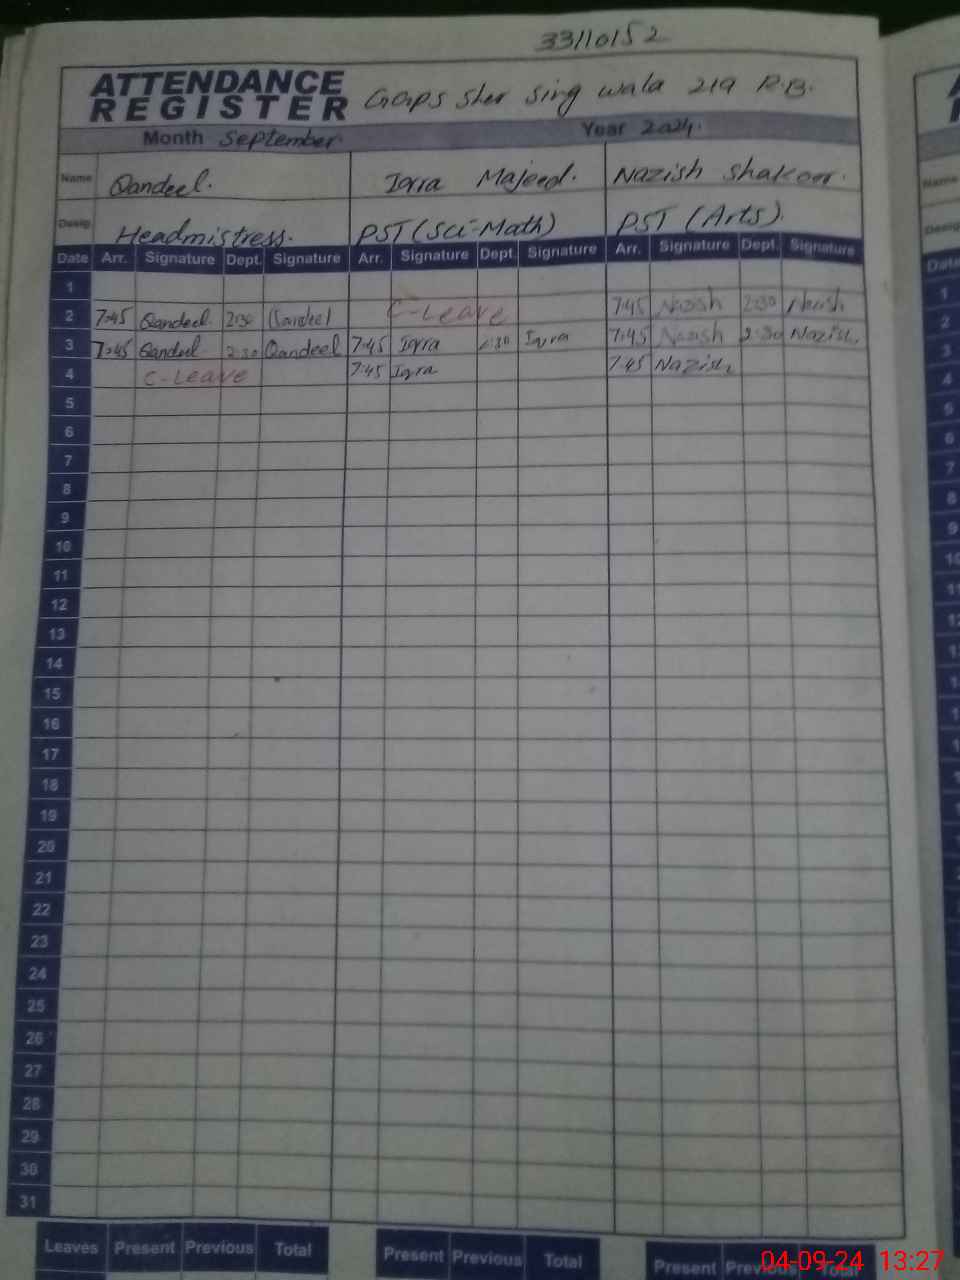 33110152
ATTENDANCE
REGISTER
Sher Sing wala 219 R.B.
Month September. Year 2024.
Name Qandeel. Iqra Majeed. Nazish Shakoor.
Desig Headmistress. PST (Sci-Math) PST (Arts).
Date Arr. Signature Dept. Signature Arr. Signature Dept. Signature Arr. Signature Dept. Signature
1
2 7:45 Qandeel 2:30 Qandeel C-Leave 7:45 Nazish 2:30 Nazish
3 7:45 Qandeel 2:30 Qandeel 7:45 Iqra 2:30 Iqra 7:45 Nazish 2:30 Nazish
4 C-Leave 7:45 Iqra 7:45 Nazish
5
6
7
8
9
10
11
12
13
14
15
16
17
18
19
20
21
22
23
24
25
26
27
28
29
30
31
Leaves Present Previous Total Present Previous Total Present Previous Total
04-09-24 13:27
Name
Desig
Date
1
2
3
4
5
6
7
8
9
10
11